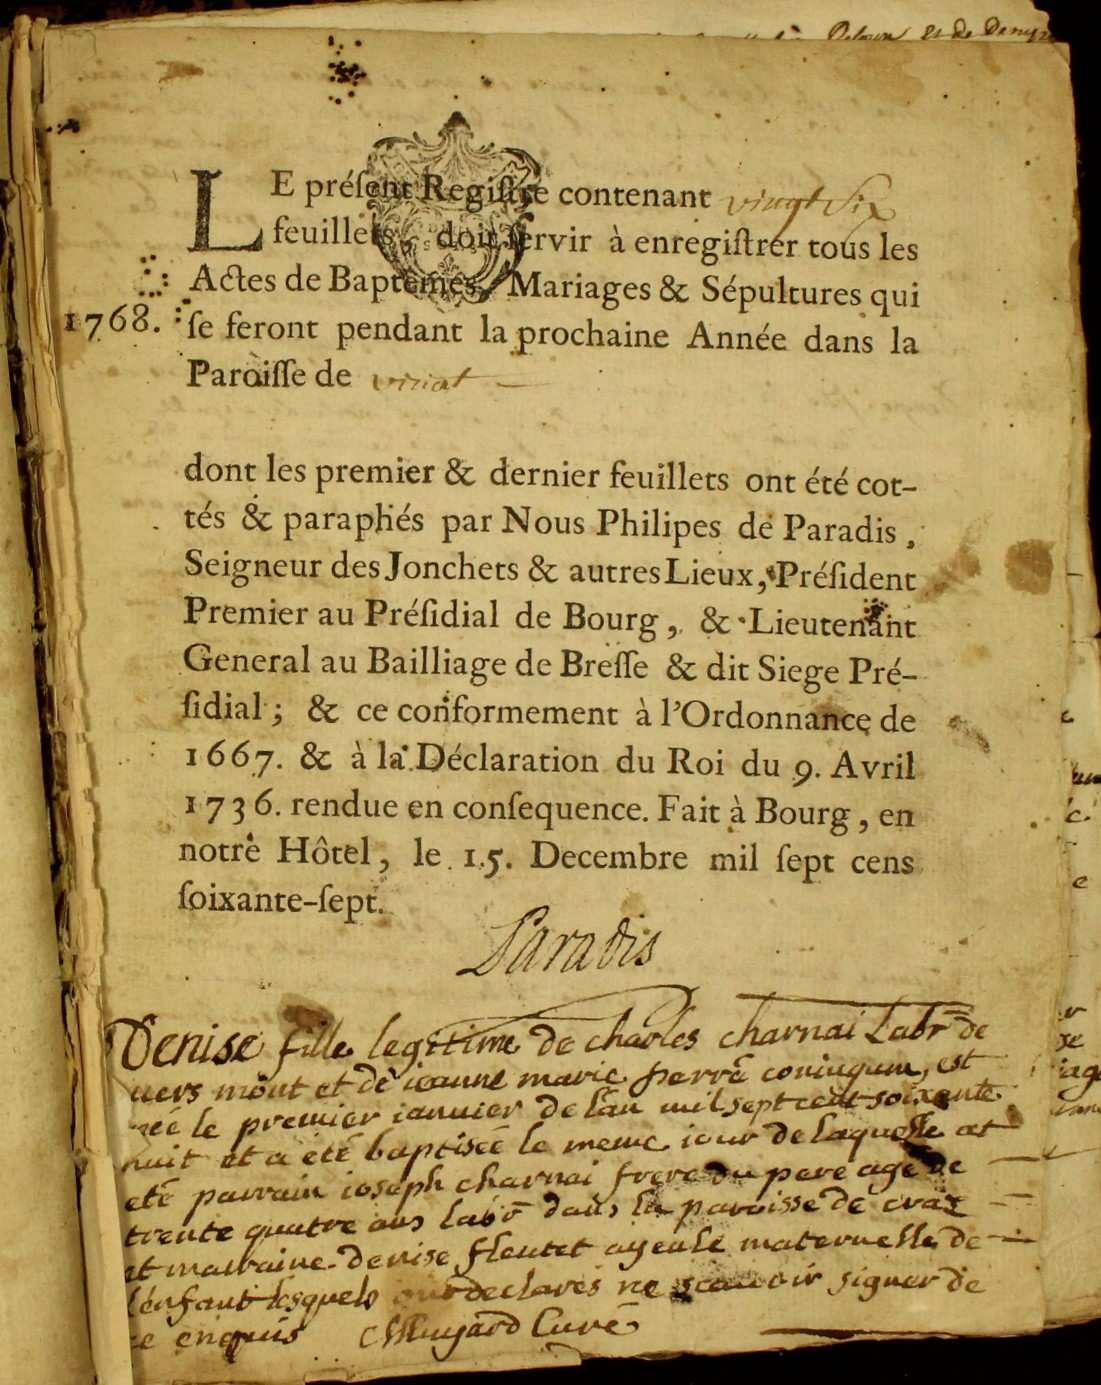 LE préſent Regiſtre contenant vingt six
feuillets, doit ſervir à enregiſtrer tous les
Actes de Baptêmes, Mariages & Sépultures qui
1768. ſe feront pendant la prochaine Année dans la
Paroiſſe de
dont les premier & dernier feuillets ont été cot-
tés & paraphés par Nous Philipes de Paradis,
Seigneur des Jonchets & autres Lieux, Préſident
Premier au Préſidial de Bourg, & Lieutenant
General au Bailliage de Breſſe & dit Siege Pré-
ſidial; & ce conformement à l'Ordonnance de
1667. & à la Déclaration du Roi du 9. Avril
1736. rendue en conſequence. Fait à Bourg, en
notre Hôtel, le 15. Decembre mil ſept cens
ſoixante-ſept.
Paradis
Denise fille legitime de charles charnai Labr de
uers mont et de ieanne marie perré coniugum, est
née le premier ianuier de lan mil sept cent soixante
huit et a eté baptisée le meme iour de laquelle at
eté parrain ioseph charnai frere du pere agé de
trente quatre ans labr dans la paroisse de cras
et marraine denise fleutet ayeule maternelle de
lenfant lesquels ont declarés ne scauoir signer de
ce enquis Muyard Curé